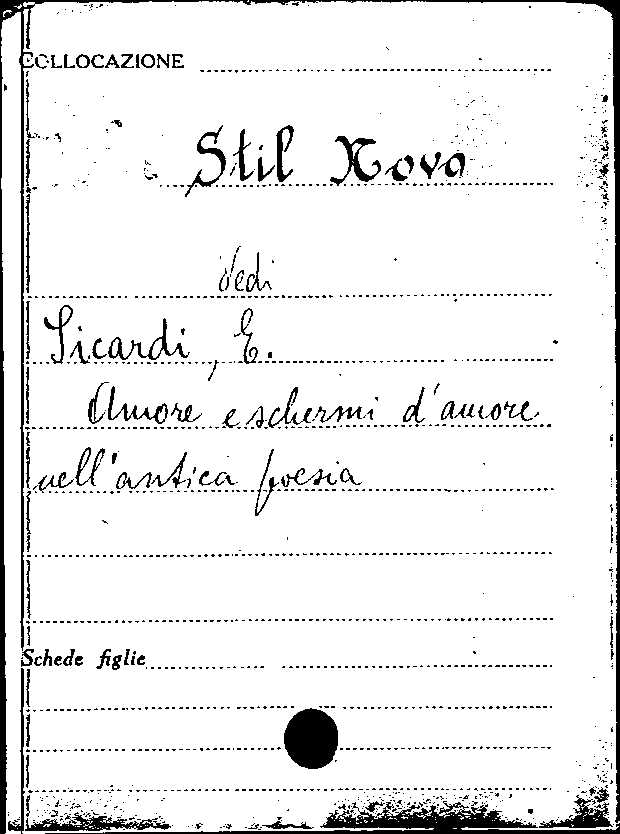 COLLOCAZIONE
Stil Novo
vedi
Sicardi, E.
Amore e schermi d'amore
nell'antica poesia
Schede figlie